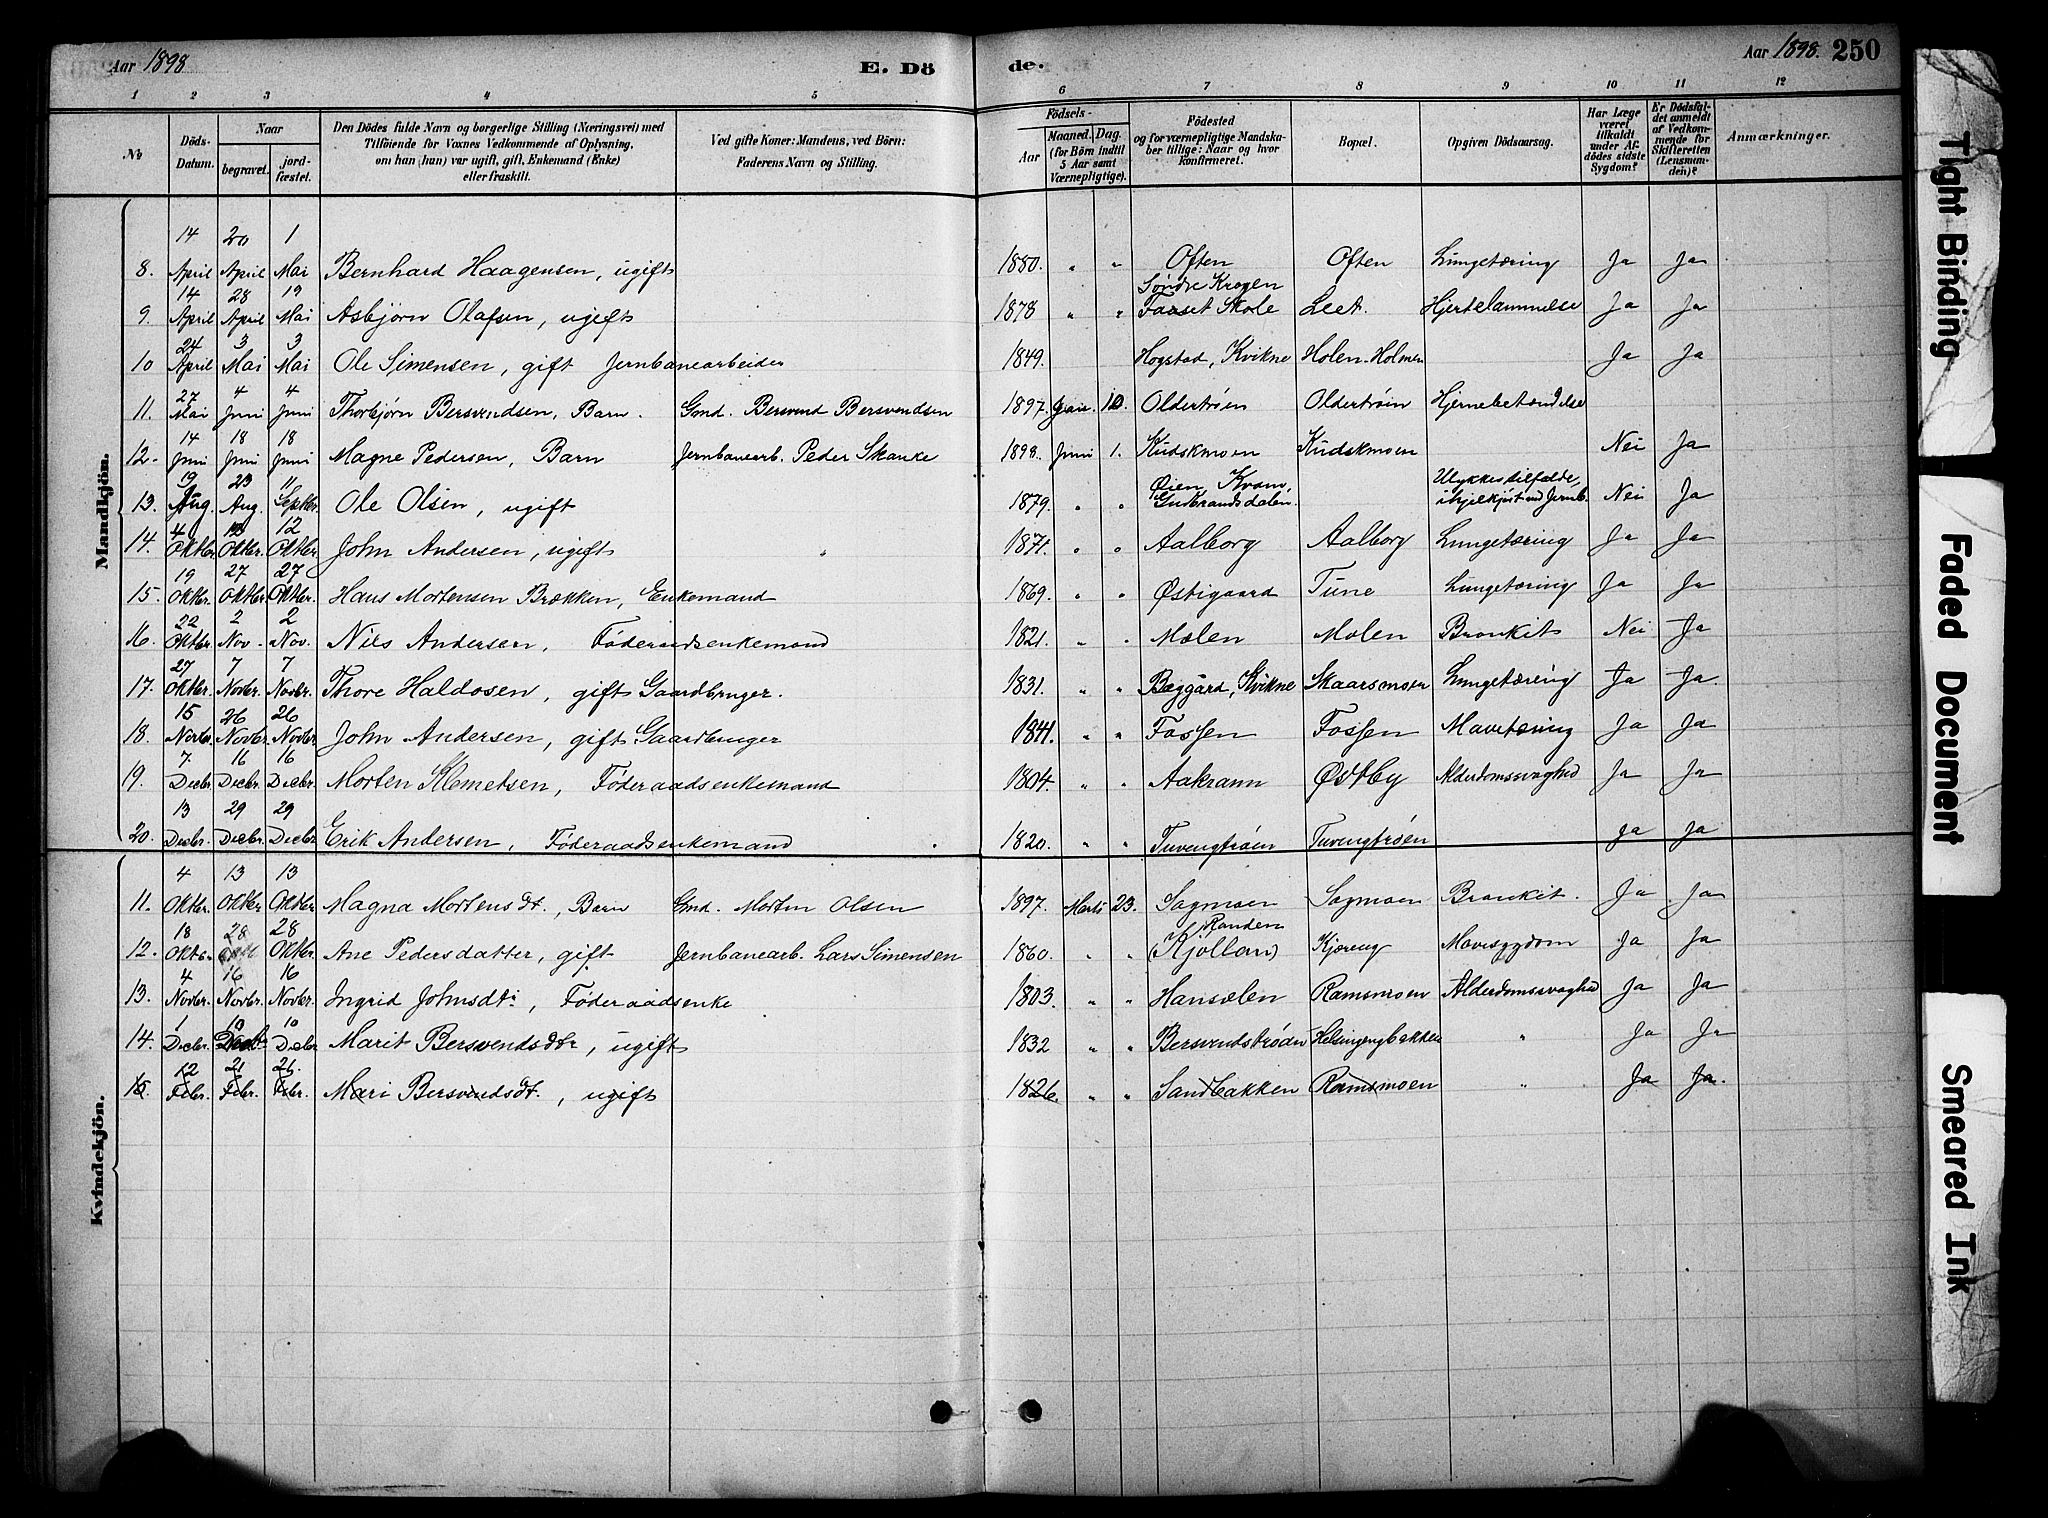 Aar 1898
E. Dö
de.
Aar 1898. 250
1 2 3 4 5 6 7 8 9 10 11 12
No
Döds-Datum.
Naar
begravet.
jord-fæstet.
Den Dödes fulde Navn og borgerlige Stilling (Næringsvei) med
Tilföiende for Voxnes Vedkommende af Oplysning,
om han (hun) var ugift, gift, Enkemand (Enke)
eller fraskilt.
Ved gifte Koner: Mandens, ved Börn:
Faderens Navn og Stilling.
Födsels-
Aar
Maaned. Dag.
(for Börn indtil
5 Aar samt
Værnepligtige).
Födested
og for værnepligtige Mandska-
ber tillige: Naar og hvor
konfirmeret.
Bopæl.
Opgiven Dödsaarsag.
Har Læge
været
tilkaldt
under Af-
dödes sidste
Sygdom?
Er Dödsfal-
det anmeldt
af Vedkom-
mende for
Skifteretten
(Lensman-
den)?
Anmærkninger.
Mandkjön.
8. 14 April 20 April 1 Mai Bernhard Haagensen, ugift 1880. " " Often Often Lungetæring Ja Ja
9. 14 April 28 April 19 Mai Asbjørn Olafsen, ugift 1878 " " Søndre Krogen Faaset Skole Leet. Hjertelammelse Ja Ja
10 24 April 3 Mai 3 Mai Ole Simensen, gift Jernbanearbeider 1849. Hogstad, Kvikne Holen-Holmen Ja Ja
11. 27 Mai 4 Juni 4 Juni Thorbjørn Bersvendsen, Barn. Gmd. Bersvend Bersvendsen 1897. 10. Oldertrøen Oldertrøen Hjernebetændelse
12. 14 Juni 18 Juni 18 Juni Magne Pedersen, Barn Jernbanearb. Peder Skanke 1898. Juni 1. Kudskmoen Kudskmoen Nei Ja
13. 19 Aug. 23 Aug. 11 Septbr. Ole Olsen, ugift 1879. " " Øien, Kvam, Gudbrandsdalen. Ulykkestilfælde, ihjelkjørt ved Jernb. Nei Ja
14. 4 Oktbr. 12 Oktbr. 12 Oktbr. John Andersen, ugift 1871. " " Aalborg Aalborg Lungetæring Ja Ja
15. 19 Oktbr. 27 Oktbr. 27 Oktbr. Hans Mortensen Brækken, Enkemand 1869. " " Østigaard Tune Lungetæring Ja Ja
16. 22 Oktbr. 2 Nov. 2 Nov. Nils Andersen, Føderaadsenkemand 1821. " " Mælen Mælen Bronkit Nei Ja
17. 27 Oktbr. 7 Novbr. 7 Novbr. Thore Haldosen, gift Gaardbruger. 1831. " " Bæggard, Kvikne Skaarsmoen Lungetæring Ja Ja
18. 15 Novbr. 26 Novbr. 26 Novbr John Andersen, gift Gaardbruger 1841. " " Fossen Fossen Mavetæring Ja Ja
19. 7. Decbr. 16 Decbr. 16 Decbr. Morten Klemetsen, Føderaadsenkemand 1804. " " Aakrann Østby Alderdomssvaghed Ja Ja
20. 13 Decbr. 29 Decbr. 29 Decbr Erik Andersen, Føderaadsenkemand 1820. " " Tuvengtrøen Tuvengtrøen Ja Ja
Kvindekjön.
11. 4 Oktbr. 13 Oktbr 13 Oktbr Magna Mortensdt., Barn Gmd. Morten Olsen 1897. Marts 23. Sagmoen Sagmoen Bronkit. Ja Ja
12. 18 Oktbr. 28 28 Oktbr. Ane Pedersdatter, gift Jernbanearb. Lars Simensen 1860. " " Randen (Kjøllan) Kjæreng Mavesygdom Ja Ja
13. 4 Novbr. 16 Novbr. 16 Novbr. Ingrid Johnsdtr, Føderaadsenke 1803. " " Hansælen Ramsmoen Alderdomssvaghed Ja Ja
14. 1 Decbr. 10 Decbr. 10 Decbr Marit Bersvendsdtr, ugift 1832 " " Bersvendstrøen Helsingengbakken " Ja Ja
15 12 Febr. 21 Febr. 26. Febr. Mari Bersvendsdt., ugift 1826. " " Sandbakken Ramsmoen " Ja Ja.
Tight Binding
Faded Document
Smeared Ink